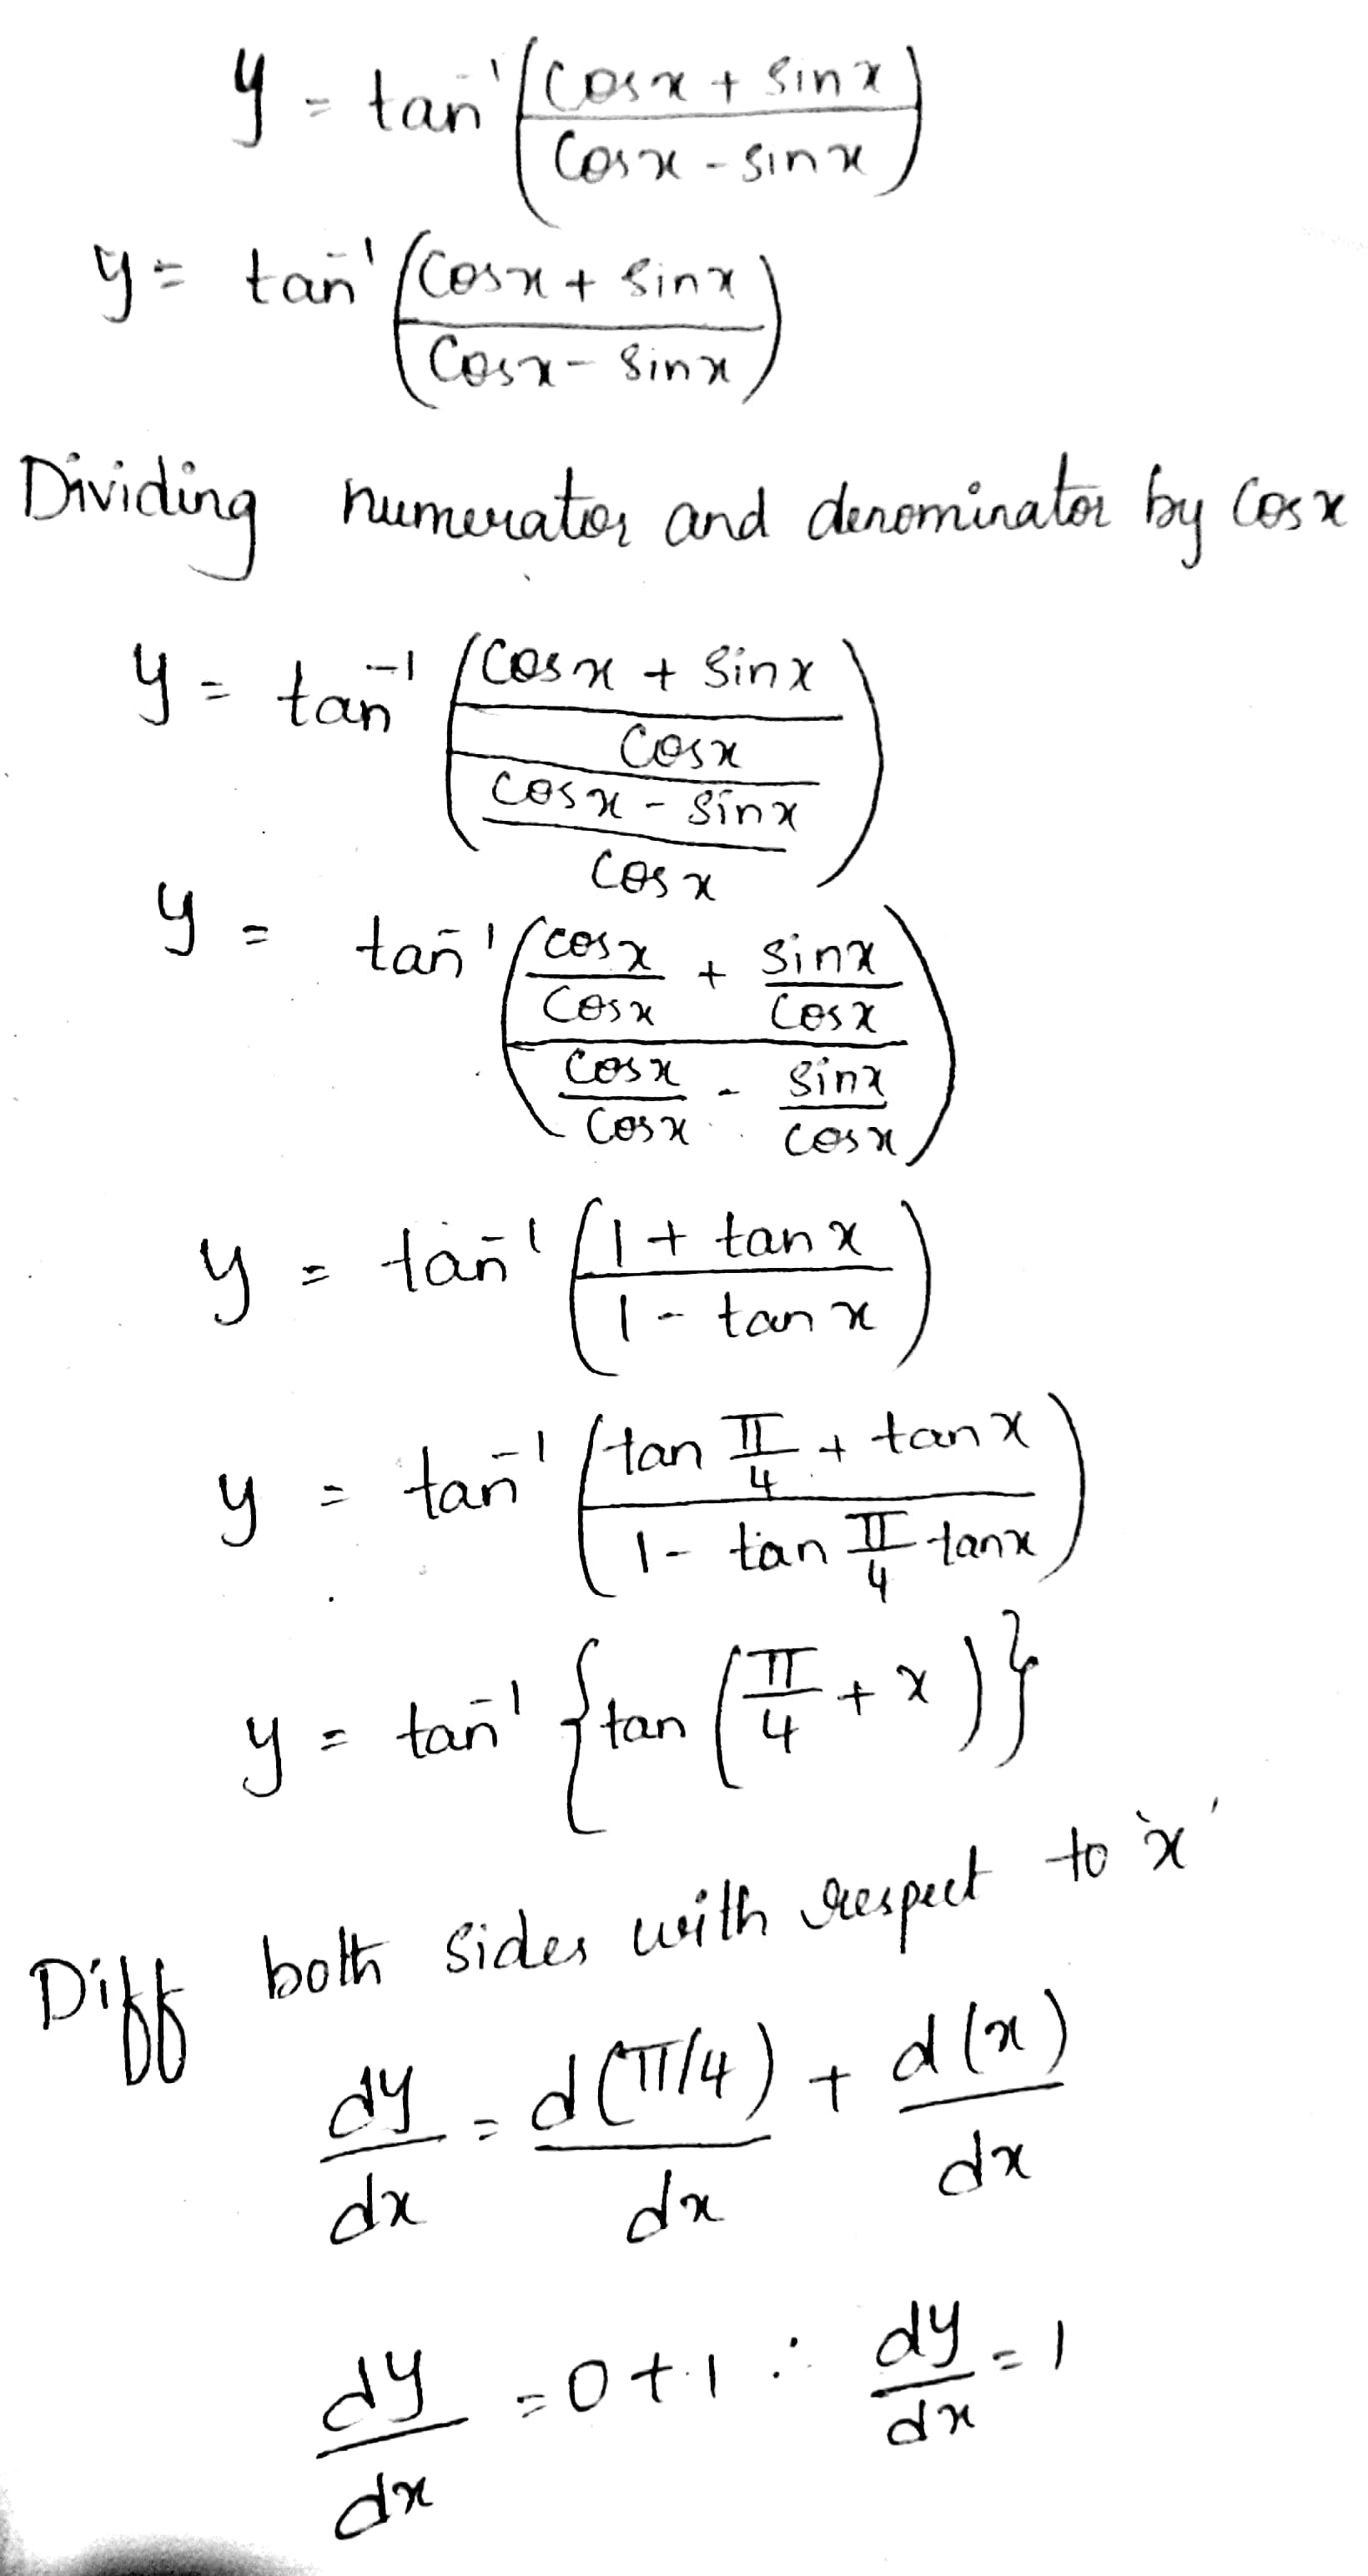 y = tan⁻¹((cosx + sinx)/(cosx - sinx))
y = tan⁻¹((cosx + sinx)/(cosx - sinx))
Dividing numerator and denominator by cosx
y = tan⁻¹(((cosx + sinx)/cosx)/((cosx - sinx)/cosx))
y = tan⁻¹((cosx/cosx + sinx/cosx)/(cosx/cosx - sinx/cosx))
y = tan⁻¹((1 + tanx)/(1 - tanx))
y = tan⁻¹((tan π/4 + tanx)/(1 - tan π/4 tanx))
y = tan⁻¹{tan(π/4 + x)}
Diff both sides with respect to 'x'
dy/dx = d(π/4)/dx + d(x)/dx
dy/dx = 0 + 1 ∴ dy/dx = 1